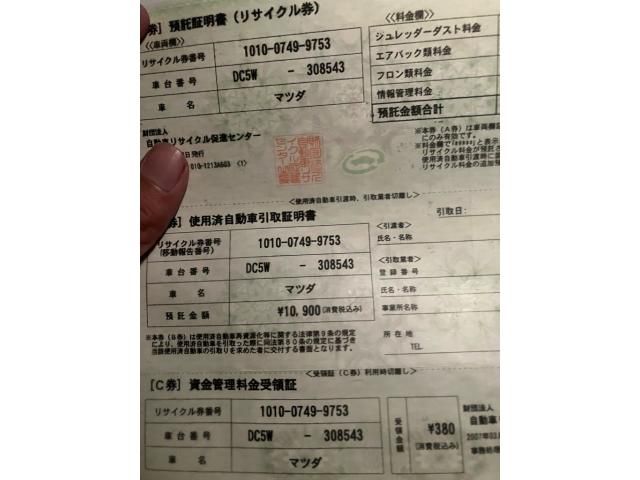 券] 預託証明書(リサイクル券)
<料金欄>
<<車両欄>>
リサイクル券番号 1010-0749-9753
車台番号 DC5W - 308543
車名 マツダ
シュレッダーダスト料金
エアバッグ類料金
フロン類料金
情報管理料金
預託金額合計
財団法人
自動車リサイクル促進センター
日発行
010-1213A603 (1)
※本券(A券)は車両欄
にのみ有効です。
<使用済自動車引渡時、引取業者切離し>
券] 使用済自動車引取証明書
引取日:
リサイクル券番号
(移動報告番号) 1010-0749-9753
車台番号 DC5W - 308543
車名 マツダ
預託金額 ¥10,900(消費税込み)
<引渡者>
氏名・名称
<引取業者>
登録番号
氏名・名称
事業所名称
所在地
TEL
※本券(B券)は使用済自動車再資源化等に関する法律第9条の規定
により、使用済自動車を引取った際に同法第80条の規定に基づき
当該使用済自動車の引取りを求めた者に交付する書面となります。
<受領証(C券)利用時切離し>
[C券] 資金管理料金受領証
リサイクル券番号 1010-0749-9753
車台番号 DC5W - 308543
車名 マツダ
受領金額 ¥380
(消費税込み)
財団法人
自動車
2007年03